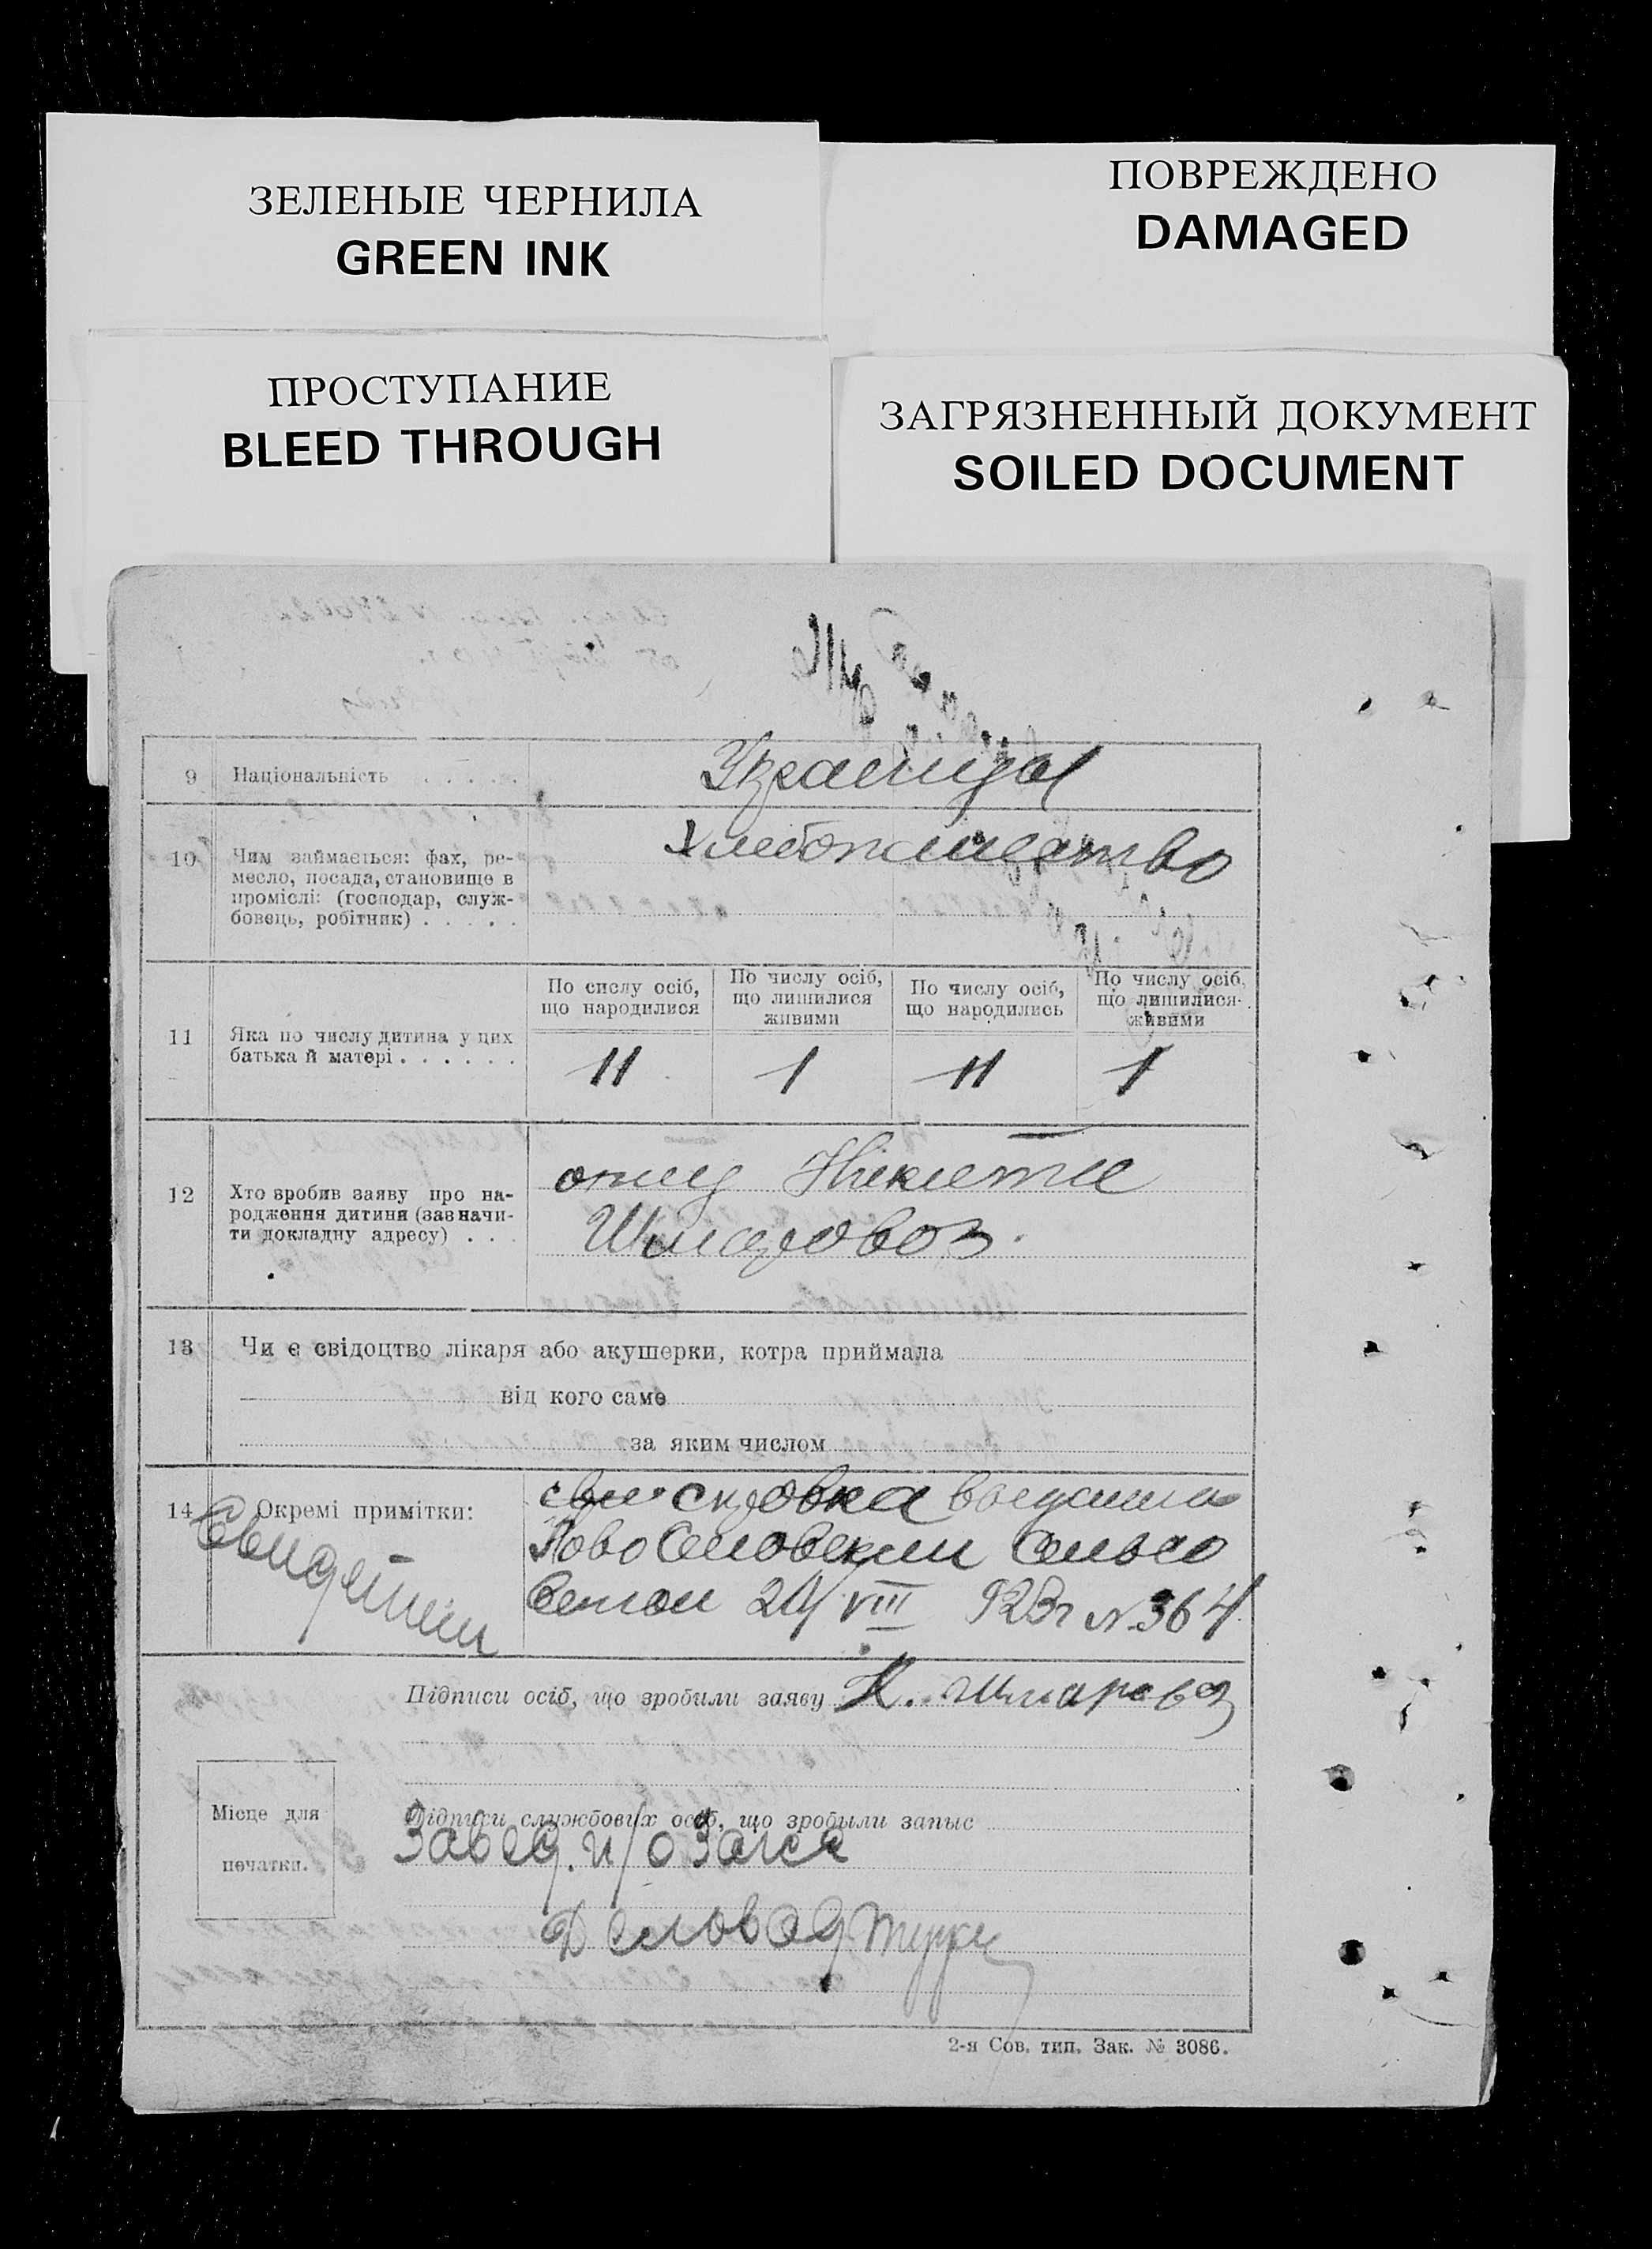 ЗЕЛЕНЫЕ ЧЕРНИЛА
GREEN INK
ПОВРЕЖДЕНО
DAMAGED
ПРОСТУПАНИЕ
BLEED THROUGH
ЗАГРЯЗНЕННЫЙ ДОКУМЕНТ
SOILED DOCUMENT
9 Національність . . . . .
Украинцы
10 Чим займається: фах, ре-
месло, посада, становище в
промислі: (господар, служ-
бовець, робітник) . . . . .
Хлебопашество
11 Яка по числу дитина у цих
батька й матері . . . . . .
По числу осіб,
що народилися
По числу осіб,
що лишилися
живими
По числу осіб,
що народились
По числу осіб,
що лишилися
живими
11 1 11 1
12 Хто зробив заяву про на-
родження дитини (зазначи-
ти докладну адресу) . . .
отец Никита
Шмаровоз.
13 Чи є свідоцтво лікаря або акушерки, котра приймала
від кого саме
за яким числом
14 Окремі примітки:
справка
Ново Сельсо
ветом 24/VIII 923г №364
Підписи осіб, що зробили заяву Н. Шмаровоз
Місце для
печатки.
Підписи службових осіб, що зробыли запыс
Завед. п/о Загса
Деловод.
2-я Сов. тип. Зак. № 3086.